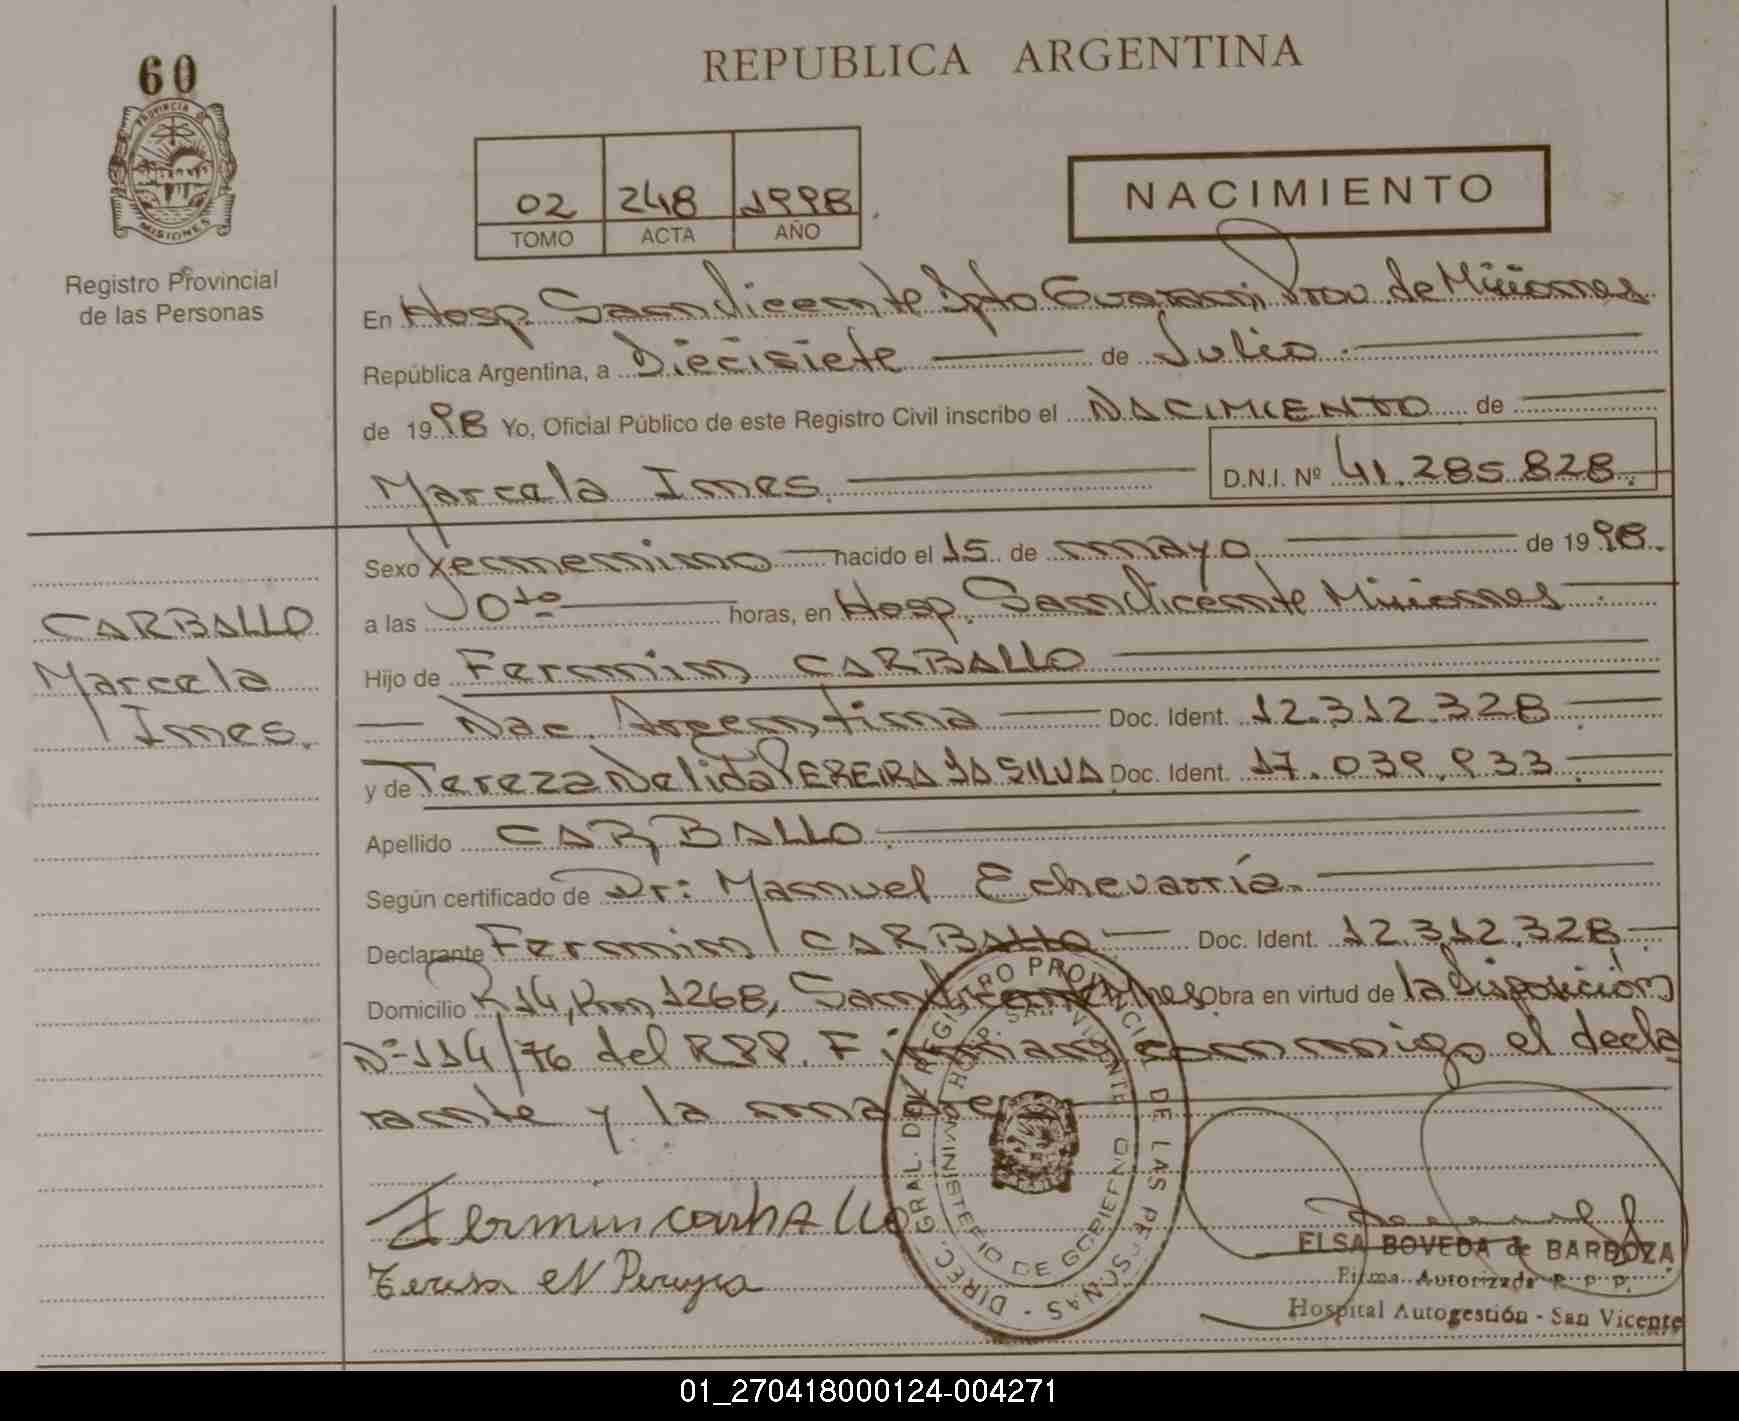 60
PROVINCIA DE
MISIONES
Registro Provincial
de las Personas
REPUBLICA ARGENTINA
02 248 1998
TOMO ACTA AÑO
NACIMIENTO
En Hosp. San Vicente Dpto Guarani, Prov. de Misiones
República Argentina, a Diecisiete de Julio
de 1998 Yo, Oficial Público de este Registro Civil inscribo el NACIMIENTO de
Marcela Ines D.N.I. Nº 41.285.828.
Sexo Femenino nacido el 15 de mayo de 1998.
a las 10 horas, en Hosp. San Vicente Misiones
Hijo de Fermin CARBALLO
Nac. Argentina Doc. Ident. 12.312.328
y de Tereza Nelida PEREIRA DA SILVA Doc. Ident. 17.039.933
Apellido CARBALLO
Según certificado de Dr: Manuel Echevarría
Declarante Fermin CARBALLO Doc. Ident. 12.312.328
Domicilio R14, Km 1268, San Vicente Mnes Obra en virtud de la disposición
Nº 114/76 del RPP. Firman conmigo el decla
rante y la madre
CARBALLO
Marcela
Ines.
Fermin carbAllo
Teresa N Pereyra
DIREC. GRAL. DEL REGISTRO PROVINCIAL DE LAS PERSONAS -
HOSP. SAN VICENTE
MINISTERIO DE GOBIERNO
ELSA BOVEDA de BARBOZA
Firma Autorizada R. P. P.
Hospital Autogestión - San Vicente
01_270418000124-004271